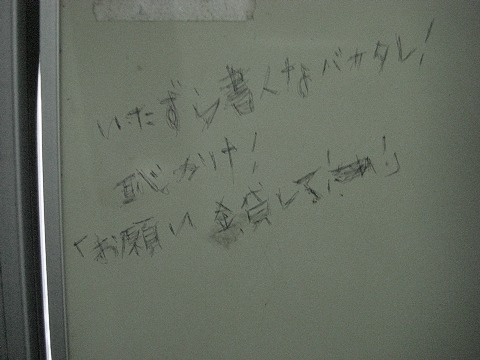 いたずら書くなバカタレ!
恥かけ!
「お願い 金貸して!」